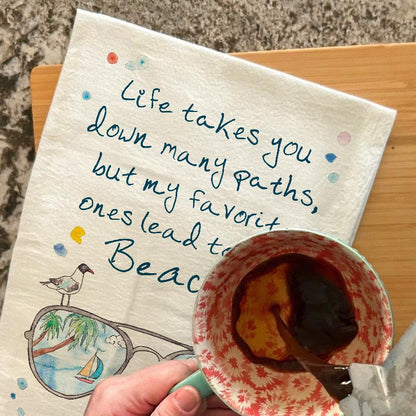 Life takes you
down many paths,
but my favorit
ones lead to
Beac